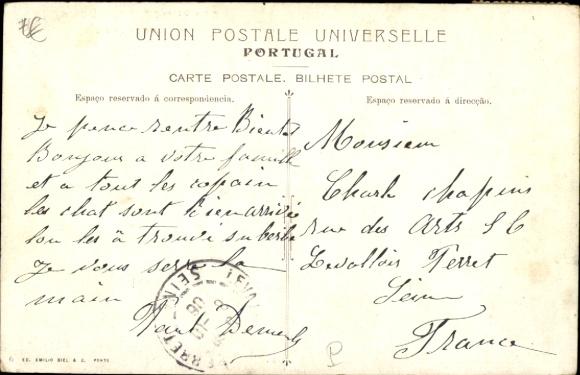 UNION POSTALE UNIVERSELLE
PORTUGAL
CARTE POSTALE. BILHETE POSTAL
Espaço reservado á correspondencia.
Espaço reservado á direcção.
Je pence rentre Bientot
Bonjour a votre famille
et a tout les copain
les chat sont bien arrivé
lon les a trouvé
Je vous serre la
main
Paul
Monsieur
Charle chapins
rue des Arts
Levallois Perret
Seine
France
ED. EMILIO BIEL & C. PORTO